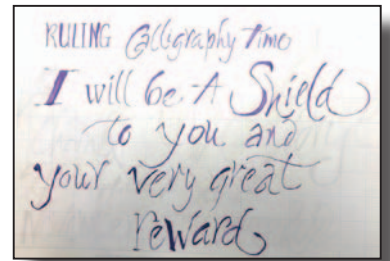 RULING Calligraphy Time
I will be A Shield
to you and
your very great
reward